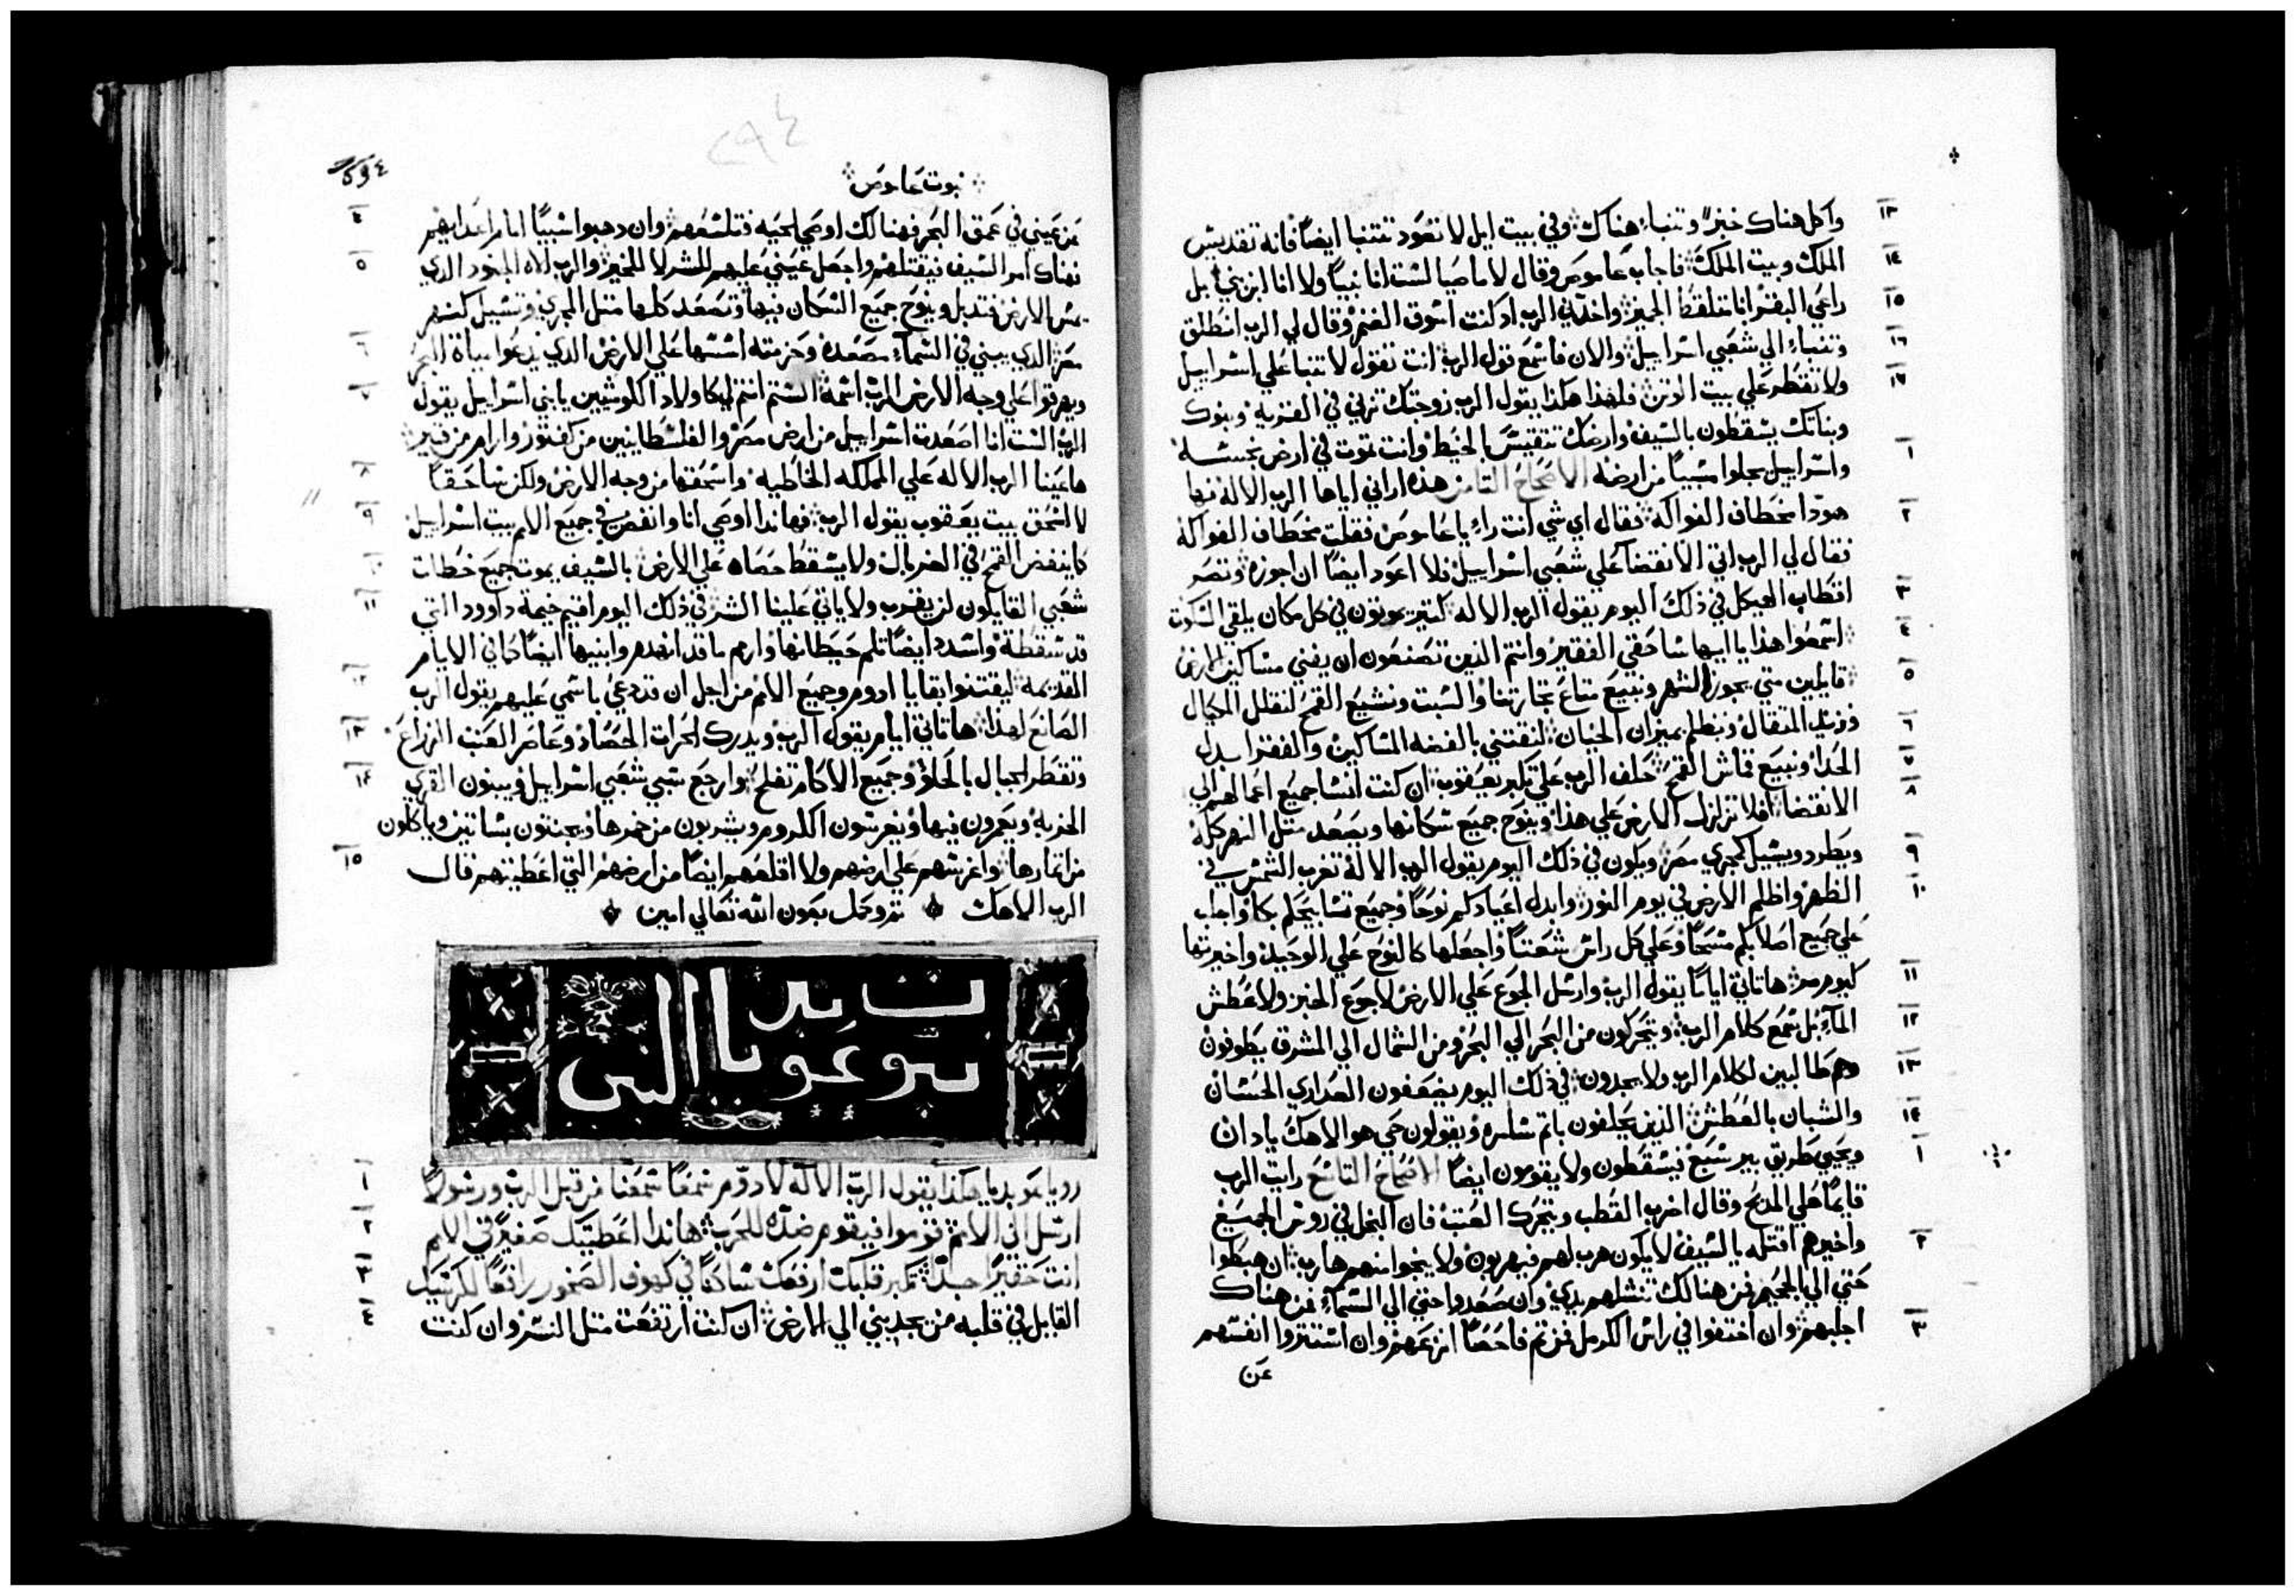 واكل هناك خبزا وتنباء هناك وفي بيت ايل لا تعود تتنبا ايضا فانه تقديس
١٣
الملك وبيت الملك فاجاب عاموص وقال لاماصيا لست انا نبيا ولا انا ابن نبي بل
١٤
راعي البقر انا متلقط الجميز واخدني الرب اد كنت اسوق الغنم وقال لي الرب انطلق
١٥
وتنباء الي شعبي اسراييل والان فاسمع قول الرب انت تقول لا تتنبا علي اسراييل
١٦
ولا تقطر علي بيت الوتن فلهذا هكذا يقول الرب زوجتك تزني في القرية وبنوك
١٧
وبناتك يسقطون بالسيف وارضك تتقيس بالحيط وانت تموت في ارض نجسة
واسراييل يجلوا سبيا من ارضه الاصحاح التامن هذه اراني اياها الرب الاله فها
١
هودا مخطاف الفواكه فقال اي شي انت راي يا عاموص فقلت مخطاف الفواكه
٢
فقال لي الرب اتي الانقضا علي شعبي اسراييل فلا اعود ايضا ان اجوزه وتصر
اقطاب الهيكل في ذلك اليوم يقول الرب الاله كتير يموتون في كل مكان يلقي السكوت
٣
اسمعوا هذا يا ايها ساحقي الفقير وانتم الذين تصنعون ان يفني مساكين الارض
٤
قايلين متي يجوز الشهر ونبيع متاع تجارتنا والسبت ونشيع القمح لنقلل المكيال
٥
ونزيد المتقال ونطلم بميزان الخبان لنقتني بالفضه المساكين والفقرا بدل
٦
الحدا ونبيع قماش القمح حلف الرب علي تكبر يعقوب ان كنت انسا جميع اعمالهم الي
٧
الانقضا افلا تزلزل الارض علي هذا وينوح جميع سكانها ويصعد متل النهر كله
٨
ويطرد ويشيل كمجري مصر ويكون في ذلك اليوم يقول الرب الاله تغرب الشمس في
٩
الظهر واظلم الارض في يوم النور وابدل اعيادكم نوحا وجميع تسابيحكم بكا واجلب
١٠
علي جميع اصلابكم مسحا وعلي كل راس شعتا واجعلها كالنوح علي الوحيد واخيرتها
كيوم مر ها تاتي اياما يقول الرب وارسل الجوع علي الارض لا جوع الخبز ولا عطش
١١
الماء بل سمع كلام الرب ويتحركون من البحر الي البحر ومن الشمال الي المشرق يطوفون
١٢
وهم طالبين لكلام الرب ولا يجدون في ذلك اليوم يضعفون العداري الحسان
١٣
والشبان بالعطش الذين يحلفون باتم سامره ويقولون حي هو الاهك يا دان
١٤
ويحيي طريق بير شبع فيسقطون ولا يقومون ايضا الاصحاح التاسع رايت الرب
١
قايما علي المدبح وقال اضرب القطب وتتحرك العتب فان البخل في روس الجميع
واخيرهم اقتله بالسيف لا يكون هرب لهم فيهربون ولا ينجوا منهم هارب ان هبطوا
٢
حتي الي الجحيم فمن هنالك تنشلهم يدي وان صعدوا حتي الي السماء فمن هناك
اجلبهم وان اختفوا في راس الكرمل فمن تم فاحصا انزعهم وان استتروا انفسهم
٣
عن
٢٩٤
نبوت عاموص
عن عيني في عمق البحر فهنالك اوصي الحيه فتلسعهم وان دهبوا سبيا امام اعدايهم
٤
فهناك امر السيف فيقتلهم واجعل عيني عليهم للشر لا للخير والرب الاه الجنود الدي
٥
يمس الارض فتدبل وينوح جميع السكان فيها وتصعد كلها متل المجري وتسيل كنهر
مصر الدي يبني في السماء مصعده وحزمته اسسها علي الارض الدي يدعوا مياة البحر
٦
ويهرقها علي وجه الارض الرب اسمه الستم انتم لي كاولاد الكوشيين يا بني اسراييل يقول
٧
الرب الست انا اصعدت اسراييل من ارض مصر والفلسطانيين من كفتور وارام من قير
ها عينا الرب الاله علي المملكه الخاطيه واسحقها من وجه الارض ولكن ساحقا
٨
لا اسحق بيت يعقوب يقول الرب فهاندا اوصي انا وانفض في جميع الامم بيت اسراييل
٩
كما ينفض القمح في الغربال ولا يسقط حصاه علي الارض بالسيف يموت جميع خطات
١٠
شعبي القايلون لن يقرب ولا ياتي علينا الشر في ذلك اليوم اقيم خيمة داوود التي
١١
قد سقطة واشدد ايضا تلم حيطانها وارم ما قد انهدم وابنيها ايضا كما في الايام
القديمه ليقتنوا بقايا ادوم وجميع الامم من اجل ان قد دعي باسمي عليهم يقول الرب
١٢
الصانع لهذا ها تاتي ايام يقول الرب ويدرك الحرات الحصاد وعاصر العنب الزارع
١٣
وتقطر الجبال بالحلاوه وجميع الاكام تفلح وارجع سبي شعبي اسراييل ويبنون القري
١٤
الخربه ويعمرون فيها ويغرسون الكروم ويشربون من خمرها ويجنتون بساتين وياكلون
من اتمارها واغرسهم علي ارضهم ولا اقلعهم ايضا من ارضهم التي اعطيتهم قال
١٥
الرب الاهك تم وكمل بعون الله تعالي امين
نبوة عوبديا النبي
رويا عوبديا هكذا يقول الرب الاله لادوم سمعا سمعنا من قبل الرب ورسولا
١
ارسل الي الامم قوموا فيقوم ضده للحرب هاندا اعطيتك صغيرا في الامم
٢
انت حقيرا جدا تكبر قلبك ارفعك ساكنا في كهوف الصخور رافعا لكرسيك
٣
القايل في قلبه من يجدبني الي الارض ان كنت ارتفعت متل النسر وان كنت
٤